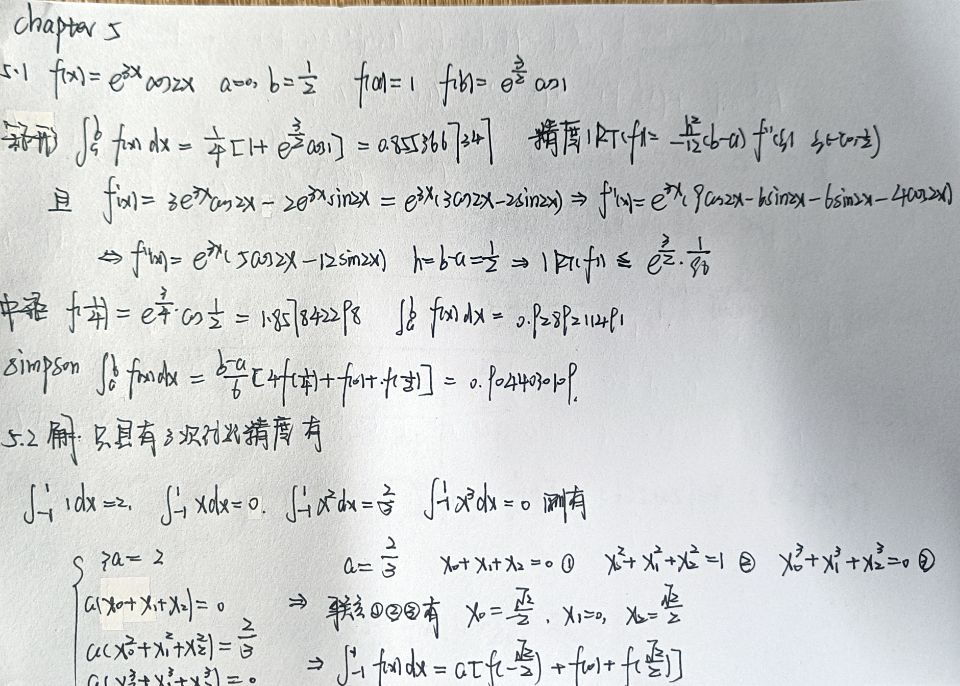 chapter 5
5.1 f(x)=e^{3x}cos2x a=0, b=\frac{1}{2} f(a)=1 f(b)=e^{\frac{3}{2}}cos1
梯形 \int_a^b f(x)dx=\frac{1}{4}[1+e^{\frac{3}{2}}cos1]=0.855366734 精度|R_T(f)|=\frac{h^2}{-12}(b-a)f''(ξ) ξ∈(0,\frac{1}{2})
且 f'(x)=3e^{3x}cos2x-2e^{3x}sin2x=e^{3x}(3cos2x-2sin2x)⇒f''(x)=e^{3x}(9cos2x-6sin2x-6sin2x-4cos2x)
⇔f''(x)=e^{3x}(5cos2x-12sin2x) h=b-a=\frac{1}{2}⇒|R_T(f)|≤e^{\frac{3}{2}}·\frac{1}{96}
中矩 f(\frac{1}{4})=e^{\frac{3}{4}}·cos\frac{1}{2}=1.857842298 \int_a^b f(x)dx=0.928921149
simpson \int_a^b f(x)dx=\frac{b-a}{6}[4f(\frac{1}{4})+f(0)+f(\frac{1}{2})]=0.904403010
5.2 解:只具有3次代数精度有
\int_{-1}^1 1dx=2, \int_{-1}^1 xdx=0. \int_{-1}^1 x^2dx=\frac{2}{3} \int_{-1}^1 x^3dx=0 则有
3a=2 a=\frac{2}{3} x_0+x_1+x_2=0 ① x_0^2+x_1^2+x_2^2=1 ② x_0^3+x_1^3+x_2^3=0 ③
a(x_0+x_1+x_2)=0 ⇒ 联立①②③有 x_0=\frac{\sqrt{2}}{2}, x_1=0, x_2=\frac{\sqrt{2}}{2}
a(x_0^2+x_1^2+x_2^2)=\frac{2}{3}
a(x_0^3+x_1^3+x_2^3)=0 ⇒\int_{-1}^1 f(x)dx=a[f(-\frac{\sqrt{2}}{2})+f(0)+f(\frac{\sqrt{2}}{2})]